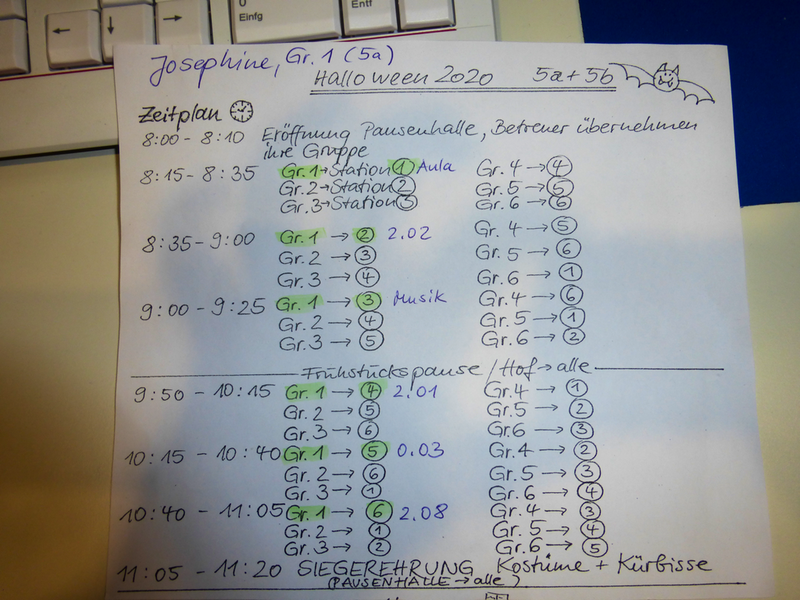 0
Einfg
Entf
←
↓
→
Josephine, Gr. 1 (5a)
Halloween 2020 5a + 5b
Zeitplan
8:00 - 8:10 Eröffnung Pausenhalle, Betreuer übernehmen
ihre Gruppe
8:15 - 8:35 Gr. 1 → Station 1 Aula Gr. 4 → 4
Gr. 2 → Station 2 Gr. 5 → 5
Gr. 3 → Station 3 Gr. 6 → 6
8:35 - 9:00 Gr. 1 → 2 2.02 Gr. 4 → 5
Gr. 2 → 3 Gr. 5 → 6
Gr. 3 → 4 Gr. 6 → 1
9:00 - 9:25 Gr. 1 → 3 Musik Gr. 4 → 6
Gr. 2 → 4 Gr. 5 → 1
Gr. 3 → 5 Gr. 6 → 2
Frühstückspause / Hof → alle
9:50 - 10:15 Gr. 1 → 4 2.01 Gr. 4 → 1
Gr. 2 → 5 Gr. 5 → 2
Gr. 3 → 6 Gr. 6 → 3
10:15 - 10:40 Gr. 1 → 5 0.03 Gr. 4 → 2
Gr. 2 → 6 Gr. 5 → 3
Gr. 3 → 1 Gr. 6 → 4
10:40 - 11:05 Gr. 1 → 6 2.08 Gr. 4 → 3
Gr. 2 → 1 Gr. 5 → 4
Gr. 3 → 2 Gr. 6 → 5
11:05 - 11:20 SIEGEREHRUNG Kostüme + Kürbisse
(PAUSENHALLE → alle)